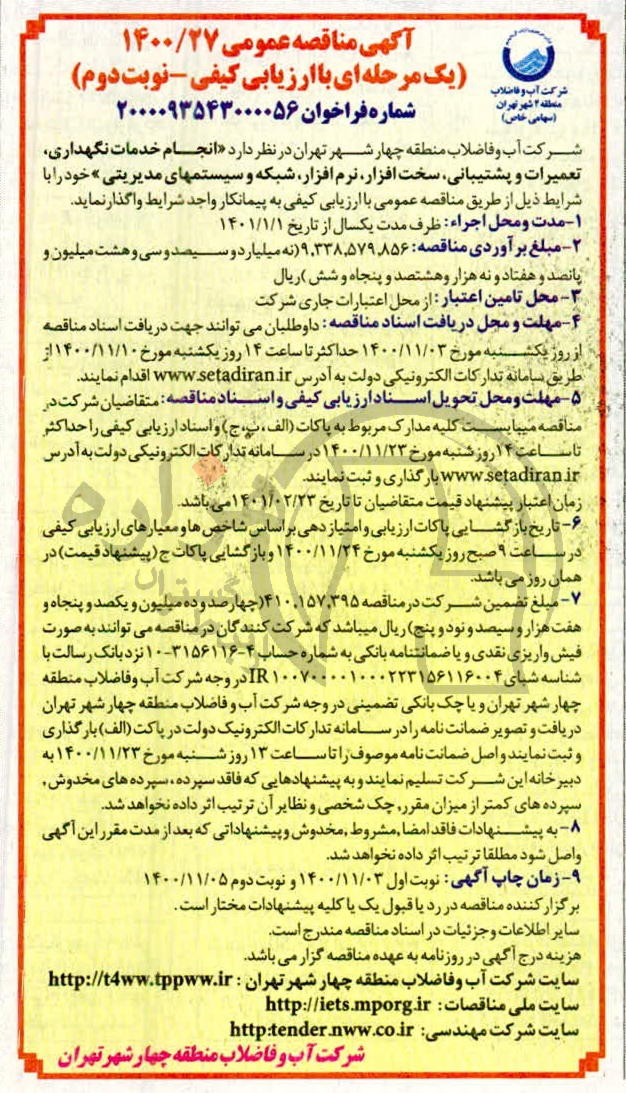 آگهی مناقصه عمومی ۱۴۰۰/۲۷
(یک مرحله‌ای با ارزیابی کیفی - نوبت دوم)
شماره فراخوان ۲۰۰۰۰۹۳۵۴۳۰۰۰۰۵۶
شرکت آب و فاضلاب
منطقه ۴ شهر تهران
(سهامی خاص)
شرکت آب و فاضلاب منطقه چهار شهر تهران در نظر دارد «انجام خدمات نگهداری،
تعمیرات و پشتیبانی، سخت افزار، نرم افزار، شبکه و سیستمهای مدیریتی» خود را با
شرایط ذیل از طریق مناقصه عمومی با ارزیابی کیفی به پیمانکار واجد شرایط واگذار نماید.
۱- مدت و محل اجراء: ظرف مدت یکسال از تاریخ ۱۴۰۱/۱/۱
۲- مبلغ برآوردی مناقصه: ۹,۳۳۸,۵۷۹,۸۵۶ (نه میلیارد و سیصد و سی و هشت میلیون و
پانصد و هفتاد و نه هزار و هشتصد و پنجاه و شش) ریال
۳- محل تامین اعتبار: از محل اعتبارات جاری شرکت
۴- مهلت و محل دریافت اسناد مناقصه: داوطلبان می توانند جهت دریافت اسناد مناقصه
از روز یکشنبه مورخ ۱۴۰۰/۱۱/۰۳ حداکثر تا ساعت ۱۴ روز یکشنبه مورخ ۱۴۰۰/۱۱/۱۰ از
طریق سامانه تدارکات الکترونیکی دولت به آدرس www.setadiran.ir اقدام نمایند.
۵- مهلت و محل تحویل اسناد ارزیابی کیفی و اسناد مناقصه: متقاضیان شرکت در
مناقصه میبایست کلیه مدارک مربوط به پاکات (الف، ب، ج) و اسناد ارزیابی کیفی را حداکثر
تا ساعت ۱۴ روز شنبه مورخ ۱۴۰۰/۱۱/۲۳ در سامانه تدارکات الکترونیکی دولت به آدرس
www.setadiran.ir بارگذاری و ثبت نمایند.
زمان اعتبار پیشنهاد قیمت متقاضیان تا تاریخ ۱۴۰۱/۰۲/۲۳ می باشد.
۶- تاریخ بازگشایی پاکات ارزیابی و امتیازدهی بر اساس شاخص ها و معیارهای ارزیابی کیفی
در ساعت ۹ صبح روز یکشنبه مورخ ۱۴۰۰/۱۱/۲۴ و بازگشایی پاکات ج (پیشنهاد قیمت) در
همان روز می باشد.
۷- مبلغ تضمین شرکت در مناقصه ۴۱۰,۱۵۷,۳۹۵ (چهارصد و ده میلیون و یکصد و پنجاه و
هفت هزار و سیصد و نود و پنج) ریال میباشد که شرکت کنندگان در مناقصه می توانند به صورت
فیش واریزی نقدی و یا ضمانتنامه بانکی به شماره حساب ۴-۳۱۵۶۱۱۶-۱۰ نزد بانک رسالت با
شناسه شبای IR۱۰۰۷۰۰۰۰۱۰۰۰۲۲۳۱۵۶۱۱۶۰۰۴ در وجه شرکت آب و فاضلاب منطقه
چهار شهر تهران و یا چک بانکی تضمینی در وجه شرکت آب و فاضلاب منطقه چهار شهر تهران
دریافت و تصویر ضمانت نامه را در سامانه تدارکات الکترونیک دولت در پاکت (الف) بارگذاری
و ثبت نمایند و اصل ضمانت نامه موصوف را تا ساعت ۱۳ روز شنبه مورخ ۱۴۰۰/۱۱/۲۳ به
دبیرخانه این شرکت تسلیم نمایند و به پیشنهادهایی که فاقد سپرده، سپرده های مخدوش,
سپرده های کمتر از میزان مقرر, چک شخصی و نظایر آن ترتیب اثر داده نخواهد شد.
۸- به پیشنهادات فاقد امضا, مشروط, مخدوش و پیشنهاداتی که بعد از مدت مقرر این آگهی
واصل شود مطلقا ترتیب اثر داده نخواهد شد.
۹- زمان چاپ آگهی: نوبت اول ۱۴۰۰/۱۱/۰۳ و نوبت دوم ۱۴۰۰/۱۱/۰۵
برگزارکننده مناقصه در رد یا قبول یک یا کلیه پیشنهادات مختار است.
سایر اطلاعات و جزئیات در اسناد مناقصه مندرج است.
هزینه درج آگهی در روزنامه به عهده مناقصه گزار می باشد.
سایت شرکت آب و فاضلاب منطقه چهار شهر تهران: http://t4ww.tppww.ir
سایت ملی مناقصات: http://iets.mporg.ir
سایت شرکت مهندسی: http:tender.nww.co.ir
شرکت آب و فاضلاب منطقه چهار شهر تهران